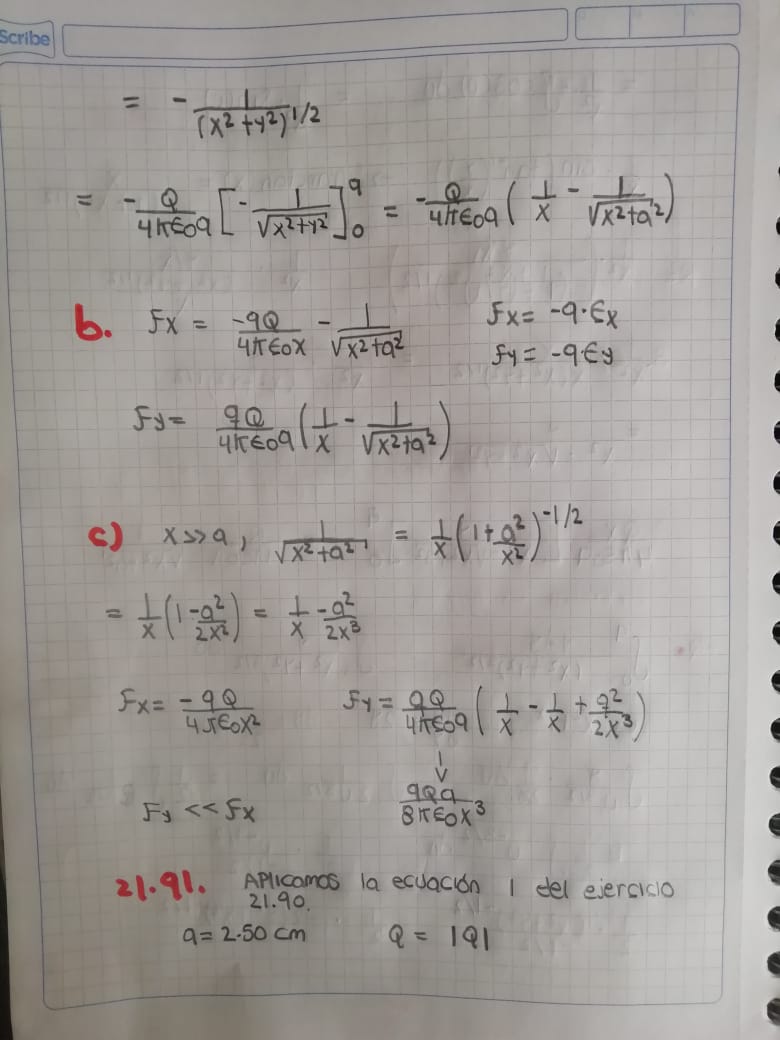 Scribe
= - 1/(x²+y²)^1/2
= -Q/4πε0a [-1/√x²+y²]₀^a = -Q/4πε0a (1/x - 1/√x²+a²)
b. Fx = -qQ/4πε0x - 1/√x²+a² Fx = -q·Ex
Fy = -qEy
Fy = qQ/4πε0a (1/x - 1/√x²+a²)
c) x>>a, 1/√x²+a² = 1/x (1+a²/x²)^-1/2
= 1/x (1-a²/2x²) = 1/x -a²/2x³
Fx = -qQ/4πε0x² Fy = qQ/4πε0a (1/x - 1/x + a²/2x³)
↓
Fy << Fx qQa/8πε0x³
21.91. Aplicamos la ecuación 1 del ejercicio
21.90.
a = 2.50 cm Q = |Q|